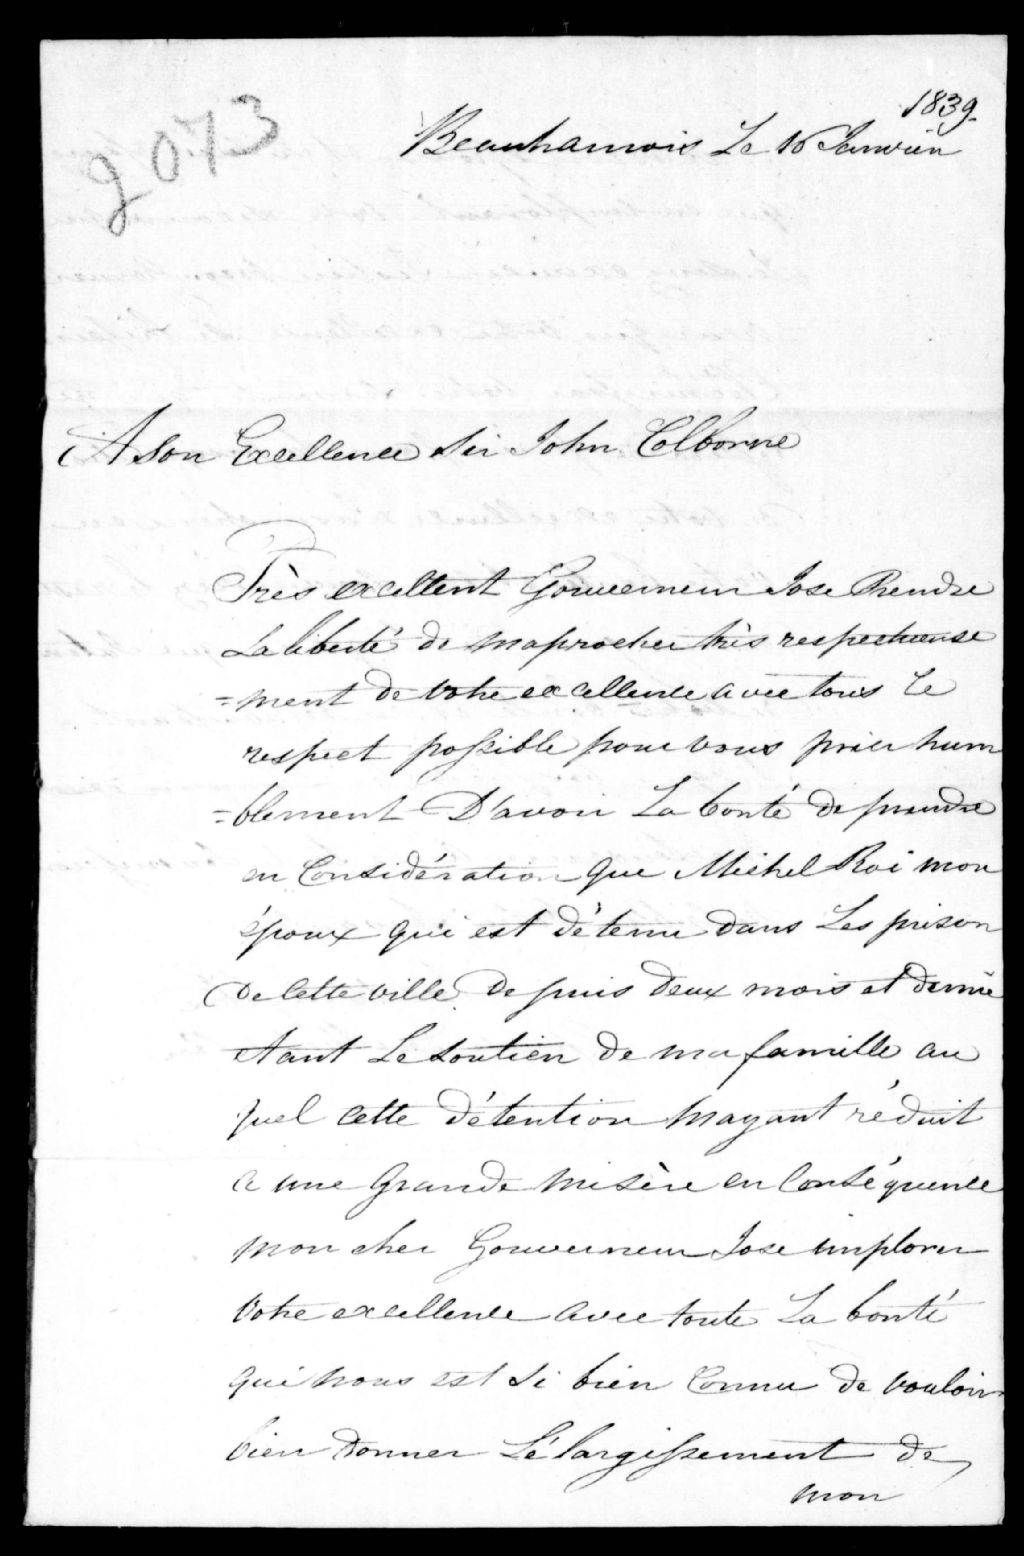 2073
1839.
Beauharnois Le 16 Janvier
A Son Excellence Sir John Colborne
Très excellent Gouverneur Jose Prendre
La liberté de maprocher très respectueuse
=ment de votre excellence avec tous le
respect possible pour vous prier hum
=blement D'avoir La bonté de prendre
en Considération que Michel Roi mon
époux qui est détenu dans Les prison
de Cette ville depuis deux mois et demie
étant Le Soutien de ma famille au
quel cette détention mayant réduit
a une Grande misère en Conséquence
mon cher Gouverneur Jose implorer
votre excellence avec toute La bonté
qui nous est si bien Connu de vouloir
bien donner L'élargissement de
mon